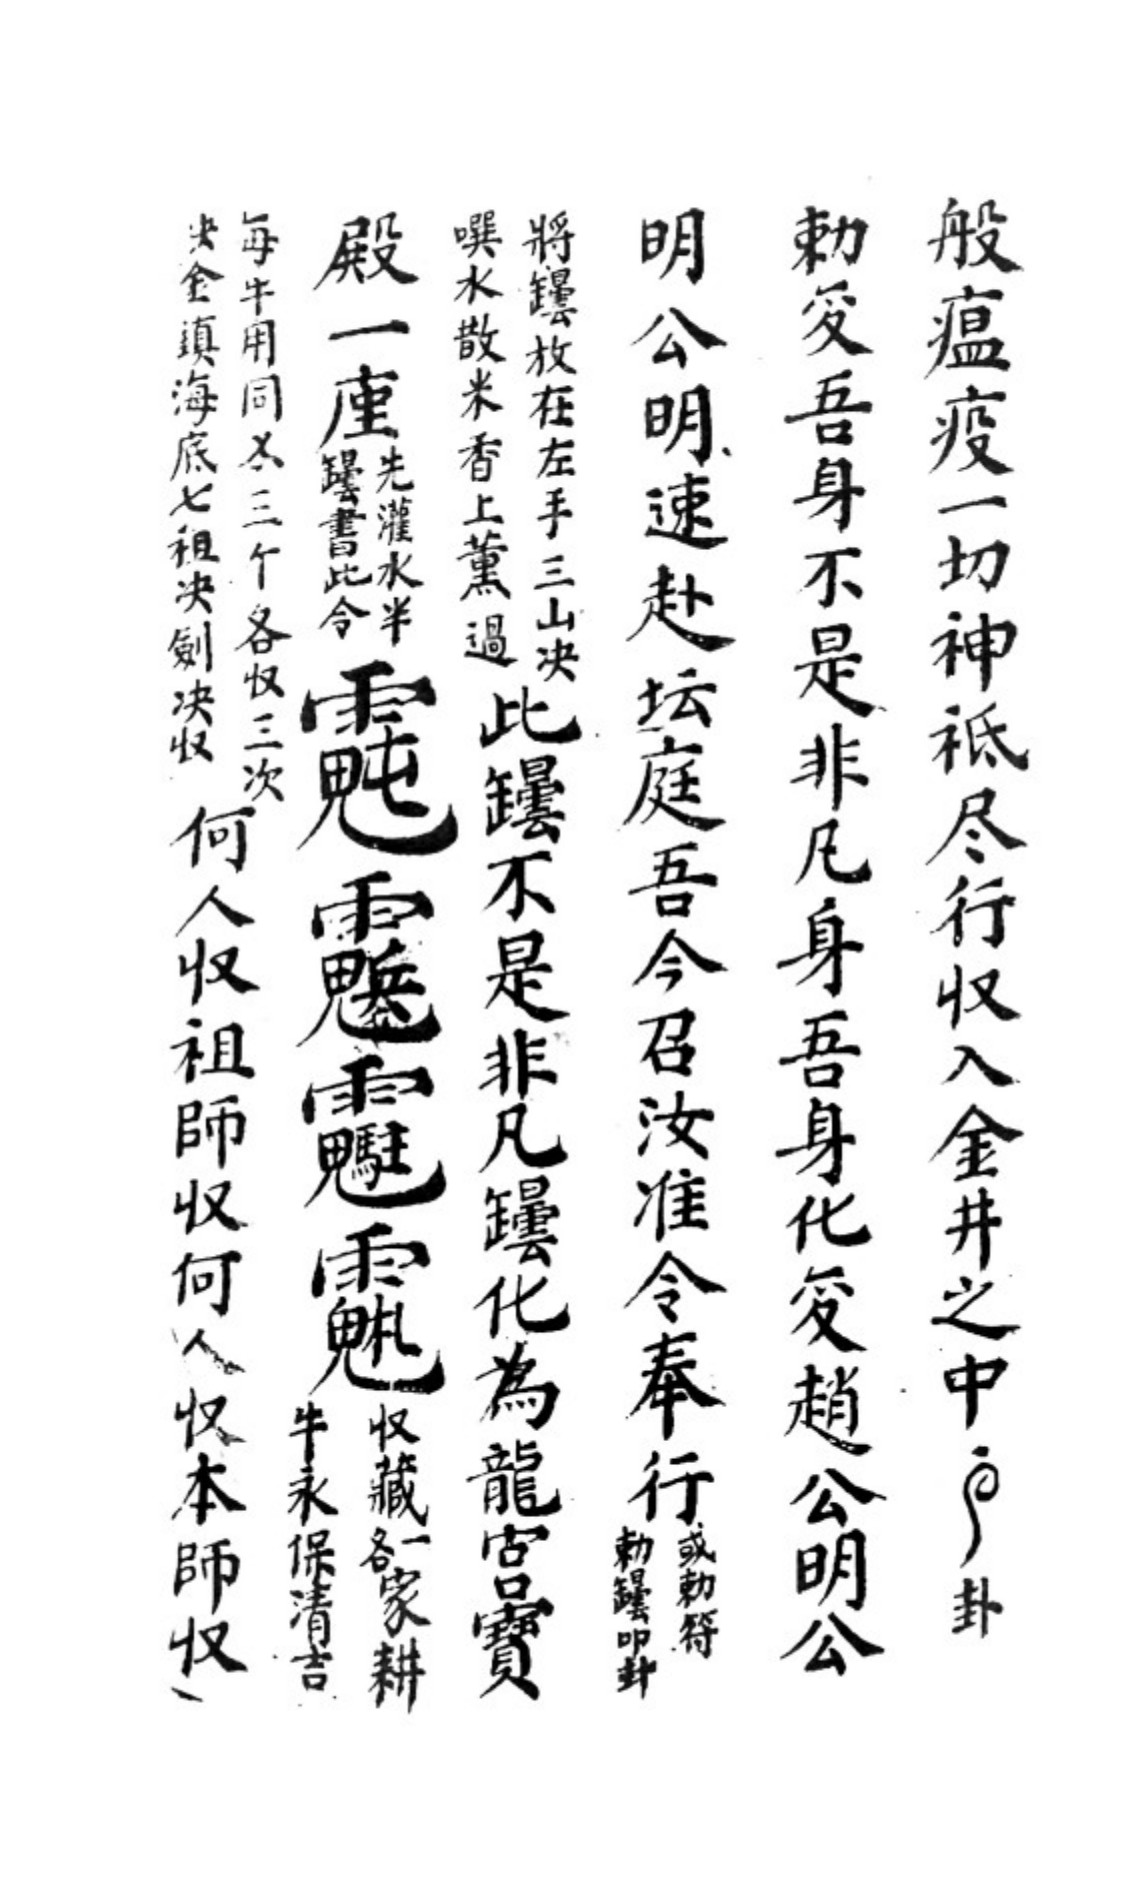 般瘟疫一切神祗尽行収入金井之中 卦
勅変吾身不是非凡身吾身化変趙公明公
明公明速赴坛庭吾今召汝准令奉行
或勅符
勅罎叩卦
將罎放在左手三山决
噀水散米香上薰過
此罎不是非凡罎化為龍宮寶
殿一座
先灌水半
罎書此令
収藏一家耕
各牛永保清吉
每牛用同三个各収三次
决金鎮海底七祖决劍决収
何人収祖師収何人収本師収